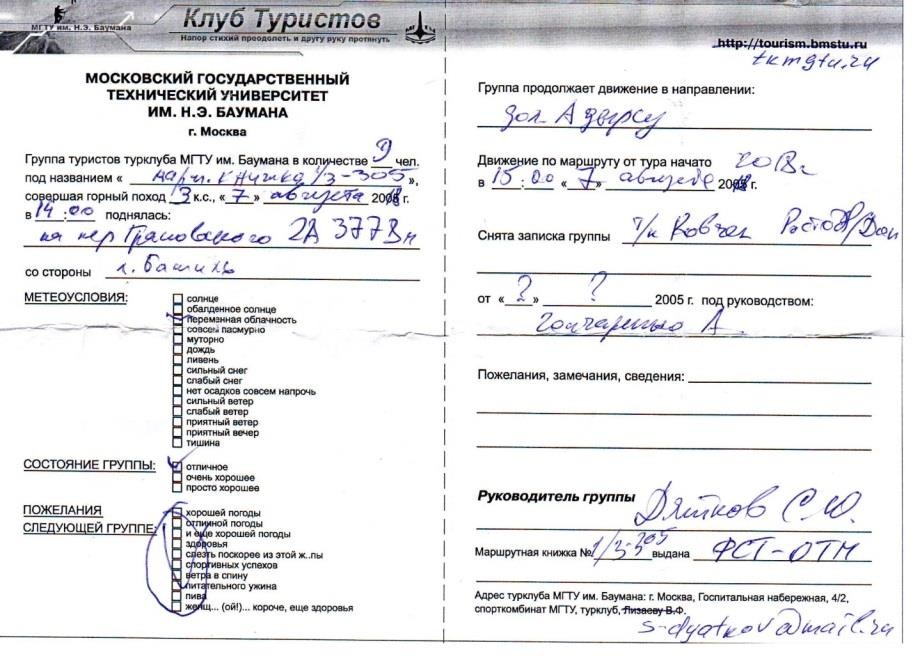 МГТУ им. Н.Э. Баумана
Клуб Туристов
Напор стихий преодолеть и другу руку протянуть
МОСКОВСКИЙ ГОСУДАРСТВЕННЫЙ
ТЕХНИЧЕСКИЙ УНИВЕРСИТЕТ
ИМ. Н.Э. БАУМАНА
г. Москва
Группа туристов турклуба МГТУ им. Баумана в количестве 9 чел.
под названием « марш. книжка 1/3-305 »,
совершая горный поход 3 к.с., « 7 » августа 200 г.
в 14:00 поднялась:
на пер Грановского 2А 377 м
со стороны л. Башиль
МЕТЕОУСЛОВИЯ:
солнце
обалденное солнце
переменная облачность
совсем пасмурно
муторно
дождь
ливень
сильный снег
слабый снег
нет осадков совсем напрочь
сильный ветер
слабый ветер
приятный ветер
приятный вечер
тишина
СОСТОЯНИЕ ГРУППЫ:
отличное
очень хорошее
просто хорошее
ПОЖЕЛАНИЯ
СЛЕДУЮЩЕЙ ГРУППЕ:
хорошей погоды
отличной погоды
и еще хорошей погоды
здоровья
слезть поскорее из этой ж..пы
спортивных успехов
ветра в спину
питательного ужина
пива
женщ... (ой!)... короче, еще здоровья
http://tourism.bmstu.ru
tkmgtu.ru
Группа продолжает движение в направлении:
дол. Адырсу
Движение по маршруту от тура начато
2018г
в 15:00 « 7 » августа 200 г.
Снята записка группы т/к Ковчег Ростов/Дон
от « ? » ? 2005 г. под руководством:
Гончаренко А.
Пожелания, замечания, сведения:
Руководитель группы
Дятков С.Ю.
Маршрутная книжка № 1/3-305 выдана ФСТ-ОТМ
Адрес турклуба МГТУ им. Баумана: г. Москва, Госпитальная набережная, 4/2,
спорткомбинат МГТУ, турклуб, Лизаеву В.Ф.
s-dyatkov@mail.ru